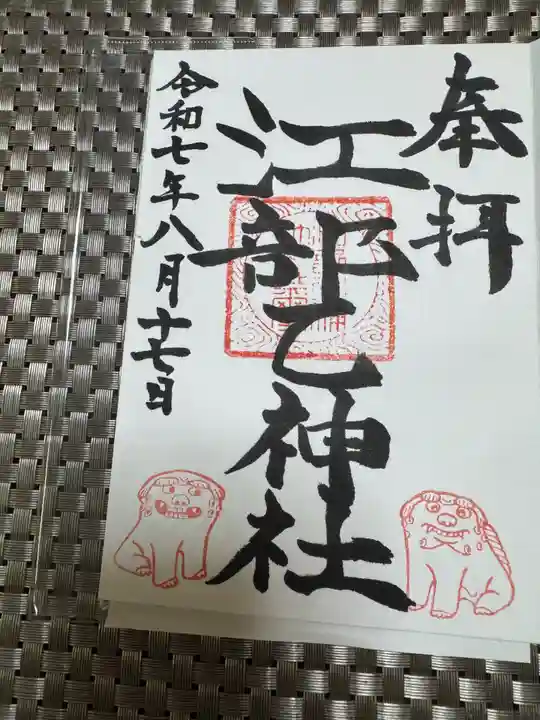 奉拝
江部乙神社
令和七年八月十七日